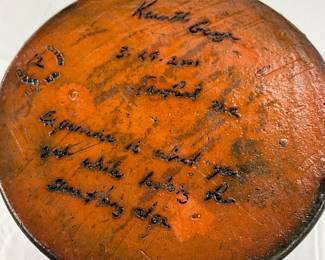 Kenneth George
3.29.2001
Sanford Me
Experience is what you
get while looking for
something else